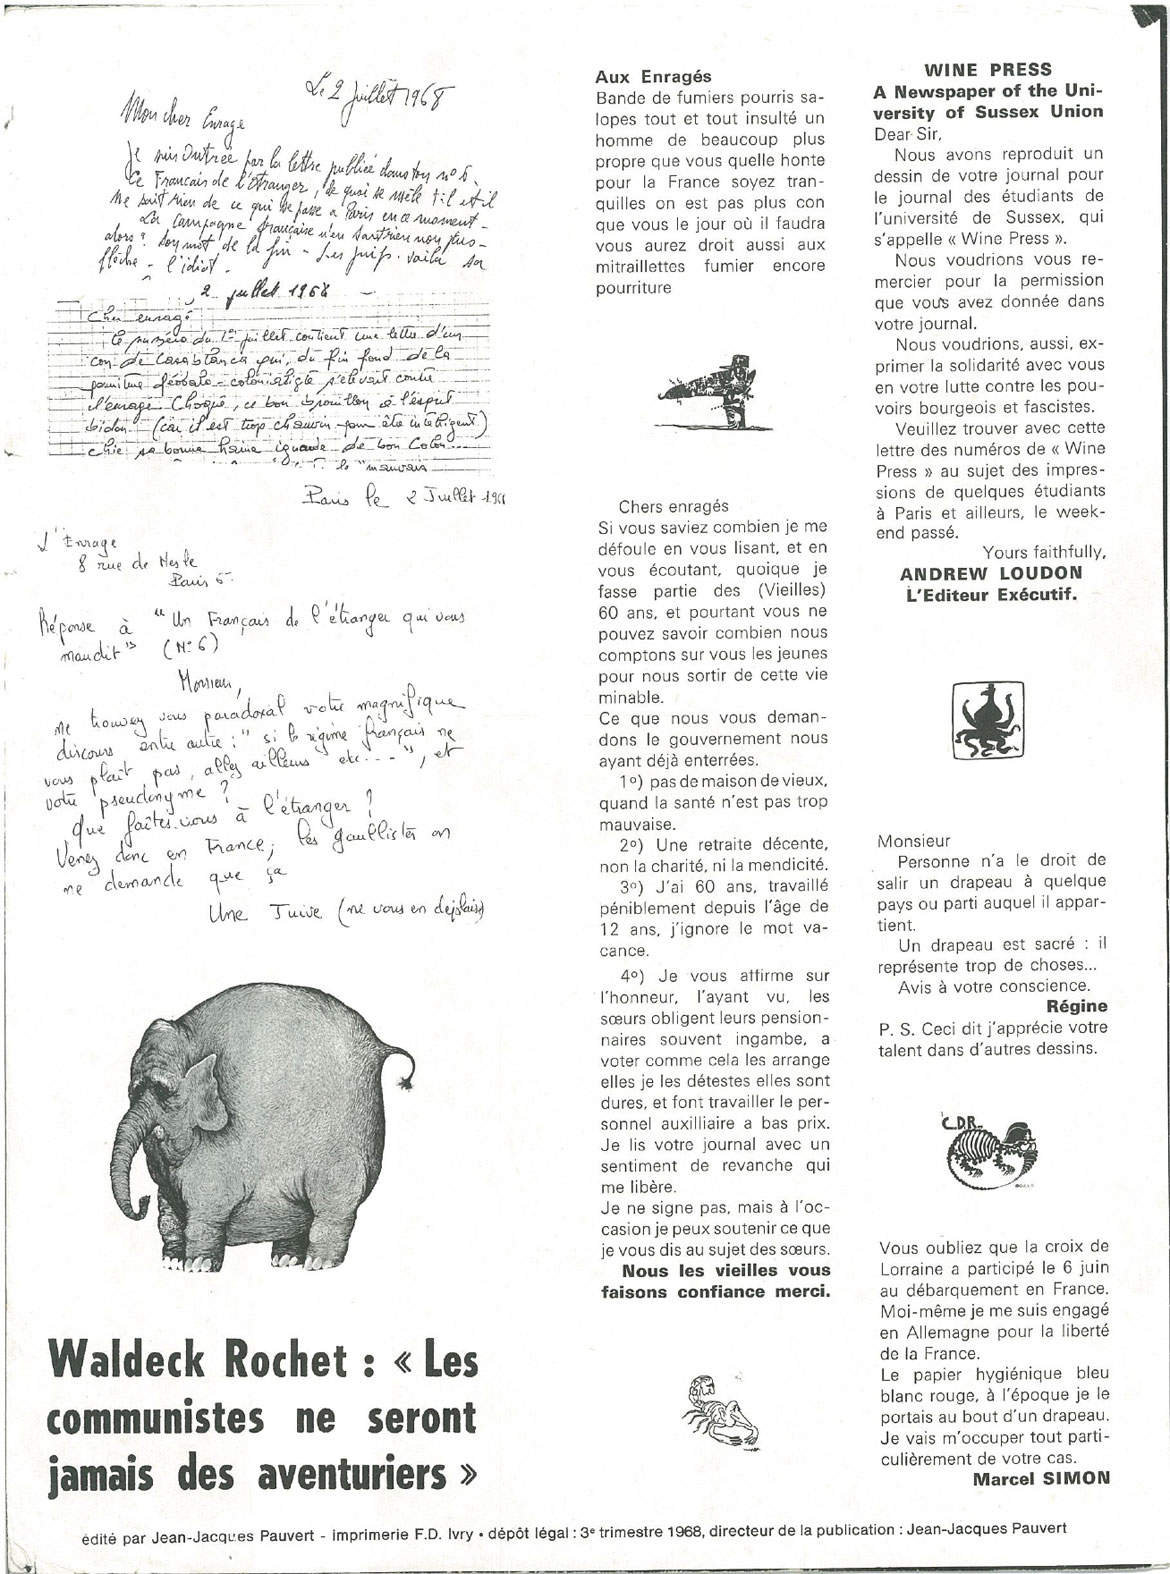 Le 2 Juillet 1968
Mon cher Enragé
Je suis Outrée par la lettre publiée dans ton no 6
Ce Français de l'Etranger, de quoi se mêle t-il et il
ne sait rien de ce qui se passe à Paris en ce moment -
La Campagne française n'en sait rien non plus -
alors ? Son mot de la fin - Les juifs. voila sa
flèche - l'idiot.
2 juillet 1968
Cher enragé
Le numéro du 1er juillet contient une lettre d'un
con de Casablanca qui, du fin fond de la
colonialiste s'élevait contre
l'enragé. Choqué, ce bon brouillon à l'esprit
bidon (car il est trop chauvin pour être intelligent)
chie sa bonne haine ignare de bon Colon.
le "mauvais
Paris le 2 Juillet 1968
L'Enragé
8 rue de Nesle
Paris 6
Réponse à "Un Français de l'étranger qui vous
maudit" (N° 6)
Monsieur,
ne trouvez vous paradoxal votre magnifique
discours entre autre : "si le régime français ne
vous plaît pas, allez ailleurs etc...", et
votre pseudonyme ?
Que faites-vous à l'étranger ?
Venez donc en France, les gaullistes on
ne demande que ça
Une Juive (ne vous en déplaise)
Waldeck Rochet : « Les
communistes ne seront
jamais des aventuriers »
Aux Enragés
Bande de fumiers pourris sa-
lopes tout et tout insulté un
homme de beaucoup plus
propre que vous quelle honte
pour la France soyez tran-
quilles on est pas plus con
que vous le jour où il faudra
vous aurez droit aussi aux
mitraillettes fumier encore
pourriture
Chers enragés
Si vous saviez combien je me
défoule en vous lisant, et en
vous écoutant, quoique je
fasse partie des (Vieilles)
60 ans, et pourtant vous ne
pouvez savoir combien nous
comptons sur vous les jeunes
pour nous sortir de cette vie
minable.
Ce que nous vous deman-
dons le gouvernement nous
ayant déjà enterrées.
1º) pas de maison de vieux,
quand la santé n'est pas trop
mauvaise.
2º) Une retraite décente,
non la charité, ni la mendicité.
3º) J'ai 60 ans, travaillé
péniblement depuis l'âge de
12 ans, j'ignore le mot va-
cance.
4º) Je vous affirme sur
l'honneur, l'ayant vu, les
sœurs obligent leurs pension-
naires souvent ingambe, a
voter comme cela les arrange
elles je les détestes elles sont
dures, et font travailler le per-
sonnel auxilliaire a bas prix.
Je lis votre journal avec un
sentiment de revanche qui
me libère.
Je ne signe pas, mais à l'oc-
casion je peux soutenir ce que
je vous dis au sujet des sœurs.
Nous les vieilles vous
faisons confiance merci.
WINE PRESS
A Newspaper of the Uni-
versity of Sussex Union
Dear Sir,
Nous avons reproduit un
dessin de votre journal pour
le journal des étudiants de
l'université de Sussex, qui
s'appelle « Wine Press ».
Nous voudrions vous re-
mercier pour la permission
que vous avez donnée dans
votre journal.
Nous voudrions, aussi, ex-
primer la solidarité avec vous
en votre lutte contre les pou-
voirs bourgeois et fascistes.
Veuillez trouver avec cette
lettre des numéros de « Wine
Press » au sujet des impres-
sions de quelques étudiants
à Paris et ailleurs, le week-
end passé.
Yours faithfully,
ANDREW LOUDON
L'Editeur Exécutif.
Monsieur
Personne n'a le droit de
salir un drapeau à quelque
pays ou parti auquel il appar-
tient.
Un drapeau est sacré : il
représente trop de choses...
Avis à votre conscience.
Régine
P. S. Ceci dit j'apprécie votre
talent dans d'autres dessins.
C.D.R.
Vous oubliez que la croix de
Lorraine a participé le 6 juin
au débarquement en France.
Moi-même je me suis engagé
en Allemagne pour la liberté
de la France.
Le papier hygiénique bleu
blanc rouge, à l'époque je le
portais au bout d'un drapeau.
Je vais m'occuper tout parti-
culièrement de votre cas.
Marcel SIMON
édité par Jean-Jacques Pauvert - imprimerie F.D. Ivry • dépôt légal : 3e trimestre 1968, directeur de la publication : Jean-Jacques Pauvert